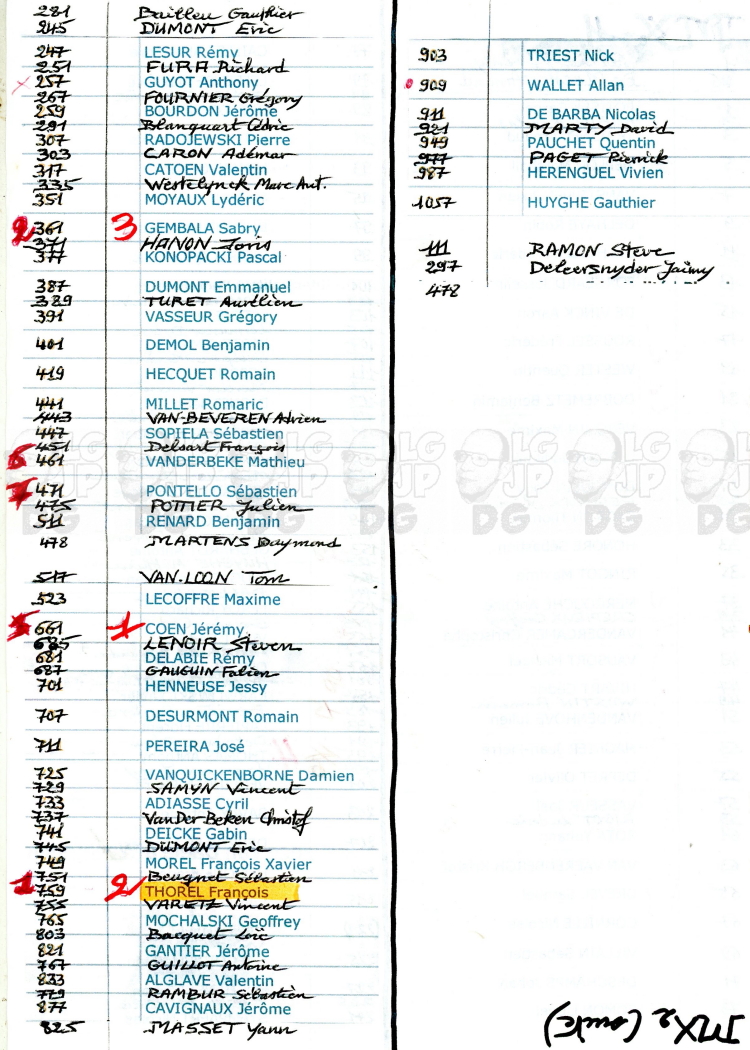 281 Bailleu Gauthier
245 DUMONT Eric
247 LESUR Rémy
251 FURA Richard
257 GUYOT Anthony
267 FOURNIER Grégory
259 BOURDON Jérôme
291 Blanquart Cédric
307 RADOJEWSKI Pierre
303 CARON Adémar
317 CATOEN Valentin
335 Westelynck Marc Ant.
351 MOYAUX Lydéric
2 361 3 GEMBALA Sabry
371 HANON Joris
377 KONOPACKI Pascal
387 DUMONT Emmanuel
389 TURET Aurélien
391 VASSEUR Grégory
401 DEMOL Benjamin
419 HECQUET Romain
441 MILLET Romaric
443 VAN-BEVEREN Adrien
447 SOPIELA Sébastien
451 Delsart François
6 461 VANDERBEKE Mathieu
7 471 PONTELLO Sébastien
475 POTTIER Julien
511 RENARD Benjamin
478 MARTENS Daymond
517 VAN-LOON Tom
523 LECOFFRE Maxime
5 661 1 COEN Jérémy
685 LENOIR Steven
681 DELABIE Rémy
687 GAUGUIN Fabien
701 HENNEUSE Jessy
707 DESURMONT Romain
711 PEREIRA José
725 VANQUICKENBORNE Damien
729 SAMYN Vincent
733 ADIASSE Cyril
737 VanDer-Beken Christof
741 DEICKE Gabin
745 DUMONT Eric
749 MOREL François Xavier
751 Beugnet Sébastien
1 759 2 THOREL François
755 VARETZ Vincent
765 MOCHALSKI Geoffrey
803 Bacquet Loïc
821 GANTIER Jérôme
767 GUILLOT Antoine
833 ALGLAVE Valentin
779 RAMBUR Sébastien
877 CAVIGNAUX Jérôme
825 MASSET Yann
903 TRIEST Nick
909 WALLET Allan
911 DE BARBA Nicolas
921 MARTY David
949 PAUCHET Quentin
977 PAGET Pierrick
987 HERENGUEL Vivien
1057 HUYGHE Gauthier
111 RAMON Steve
297 Deleersnyder Jaimy
478
MX2 (suite)
LG JP DG
LG JP DG
LG JP DG
LG JP DG
LG JP DG
LG JP DG